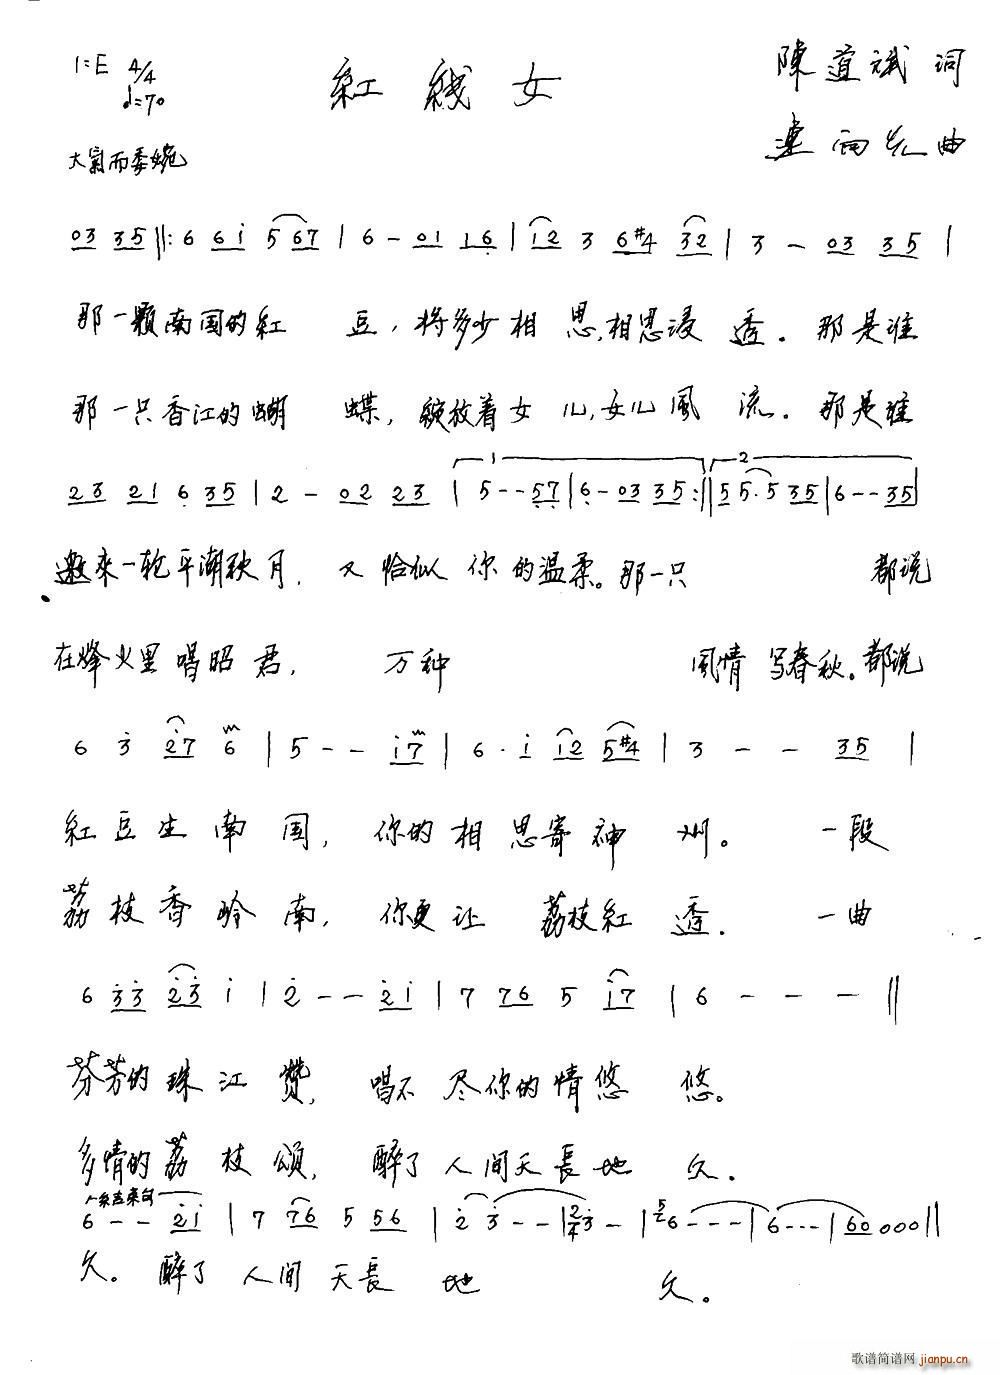 1=E 4/4
♩=70
紅线女
陳道斌 词
曲
大氣而委婉
03 35 ‖: 6 61 5 67 | 6 - 01 16 | 12 3 6#4 32 | 3 - 03 35 |
那一颗南国的紅 豆，将多少相 思,相思浸 透。那是谁
那一只香江的蝴 蝶，绽放着女 儿,女儿風 流。那是谁
1 2
23 21 6 35 | 2 - 02 23 | 5 - - 57 | 6 - 03 35 :‖ 55·5 35 | 6 - - 35 |
邀來一轮平潮秋月，又恰似 你的温柔。那一只 都说
在烽火里唱昭君， 万种 風情 写春秋。都说
6 3 27 6 | 5 - - 17 | 6 · 1 12 5#4 | 3 - - 35 |
紅豆生南国，你的相思寄神 州。 一段
荔枝香岭南，你更让 荔枝紅 透． 一曲
6 33 23 1 | 2 - - 21 | 7 76 5 17 | 6 - - - ‖
芬芳的珠江赞，唱不尽你的情悠 悠。
多情的荔枝颂，醉了人间天長地 久．
结束句
6 - - 21 | 7 76 5 56 | 2 3 - - | 2/4 3 - | 5/6 - - - | 6 - - - | 60 000 ‖
久。 醉了 人间 天長 地 久。
歌谱简谱网
jianpu.cn